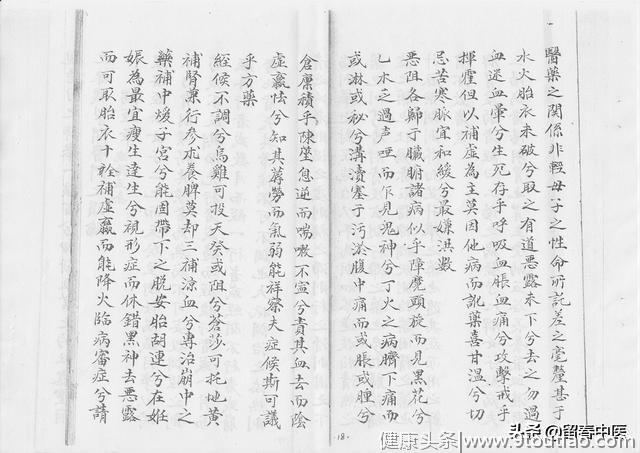 醫藥之關係非輕母子之性命所託差之毫釐甚于
水火胎衣未破兮取之有道惡露未下兮去之勿過
血迷血暈兮生死存乎呼吸血脹血痛兮攻擊戒乎
揮霍但以補虛為主莫因他病而訛藥喜甘溫兮切
忌苦寒脈宜和緩兮最嫌洪數
惡阻各歸于臟腑諸病似乎障魔頭旋而見黑花兮
乙木乏過声啞而乍見鬼神兮丁火之病臍下痛而
或淋或秘兮溝瀆塞于污淤腹中痛而或脹或腫兮
倉廩積乎陳莝息逆而喘嗽不寧兮責其血去而陰
虛羸怯兮知其蓐勞而氣弱能祥察夫症候斯可議
乎方藥
經候不調兮烏雞可投天癸或阻兮蒼莎可托地黄
補腎兼行參朮養脾莫却三補涼血兮專治崩中之
藥補中煖子宮兮能固帶下之脱安胎胡連兮在妊
娠為最宜瘦生達生兮視形症而休錯黑神去惡露
而可取胎衣十全補虛羸而能降火臨病審症兮請
18.
头条@留春中医
健康头条 www.9toutiao.com